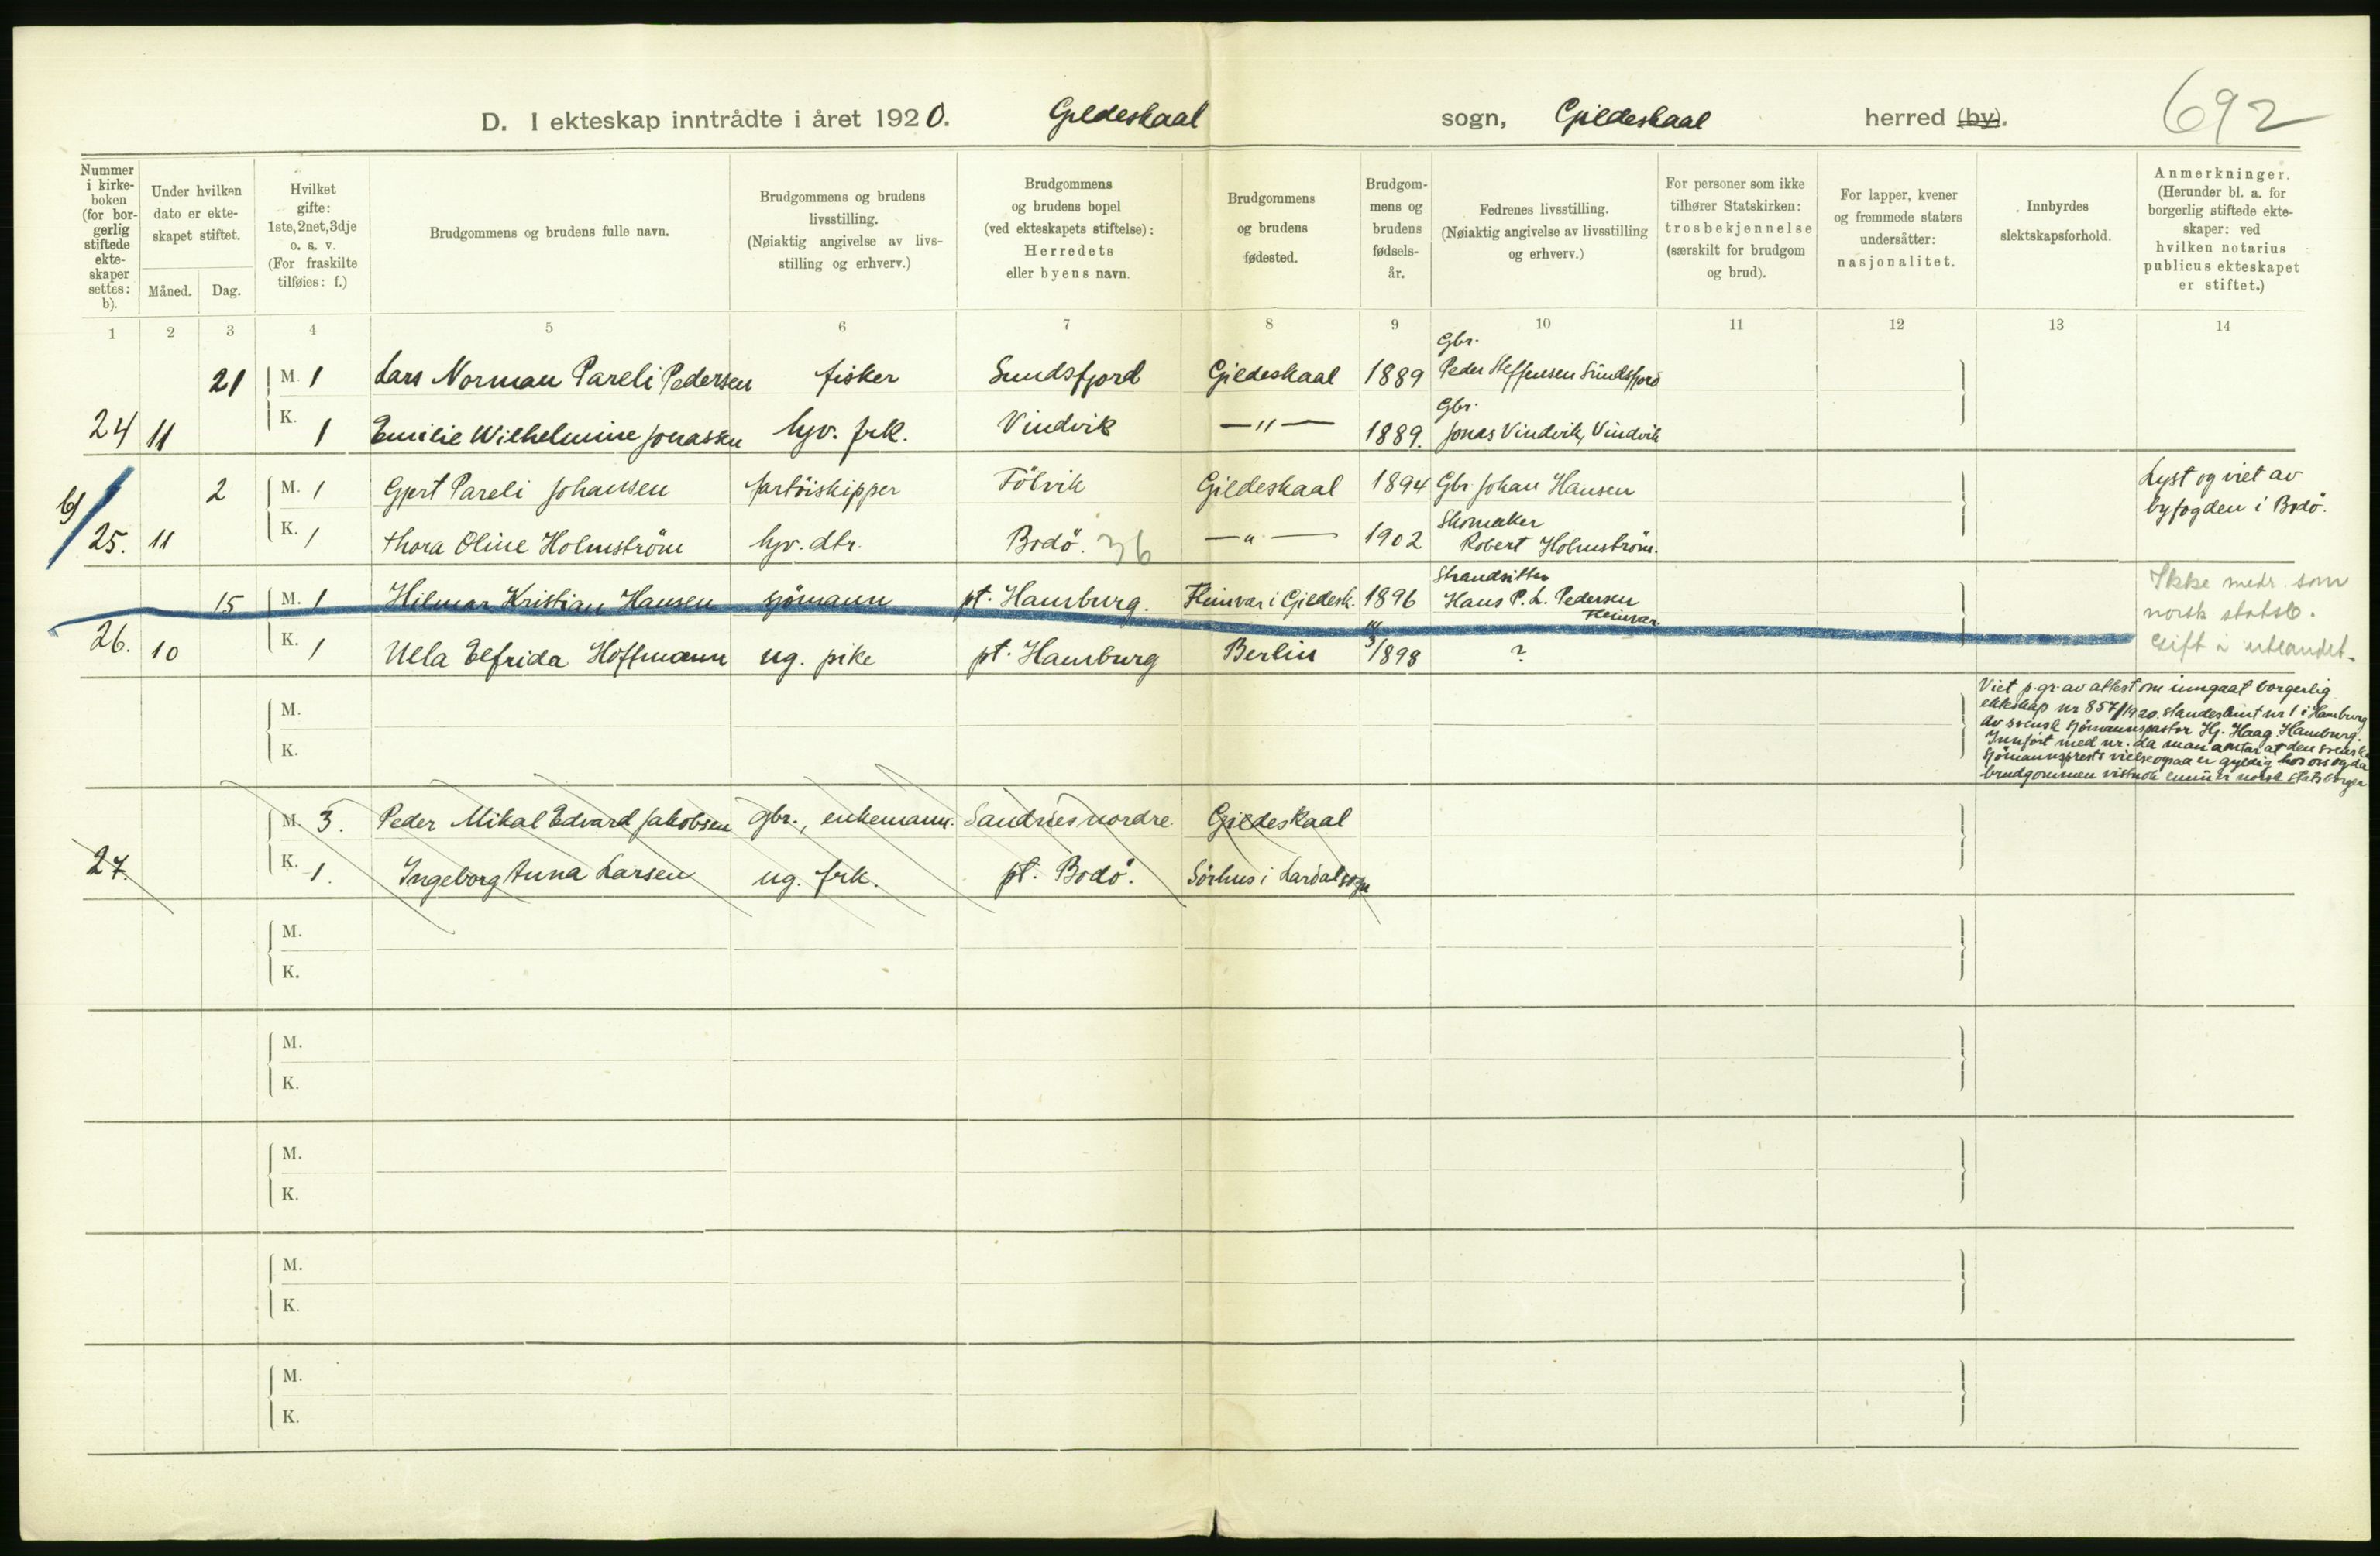 D. I ekteskap inntrådte i året 1920. Gildeskaal sogn, Gildeskaal herred (by). 692
Nummer i kirke-boken (for bor-gerlig stiftede ekte-skaper settes: b).
Under hvilken dato er ekte-skapet stiftet.
Måned. Dag.
Hvilket gifte: 1ste, 2net, 3dje o. s. v. (For fraskilte tilføies: f.)
Brudgommens og brudens fulle navn.
Brudgommens og brudens livsstilling. (Nøiaktig angivelse av livs-stilling og erhverv.)
Brudgommens og brudens bopel (ved ekteskapets stiftelse): Herredets eller byens navn.
Brudgommens og brudens fødested.
Brudgom-mens og brudens fødsels-år.
Fedrenes livsstilling. (Nøiaktig angivelse av livsstilling og erhverv.)
For personer som ikke tilhører Statskirken: trosbekjennelse (særskilt for brudgom og brud).
For lapper, kvener og fremmede staters undersåtter: nasjonalitet.
Innbyrdes slektskapsforhold.
Anmerkninger. (Herunder bl. a. for borgerlig stiftede ekte-skaper: ved hvilken notarius publicus ekteskapet er stiftet.)
1 2 3 4 5 6 7 8 9 10 11 12 13 14
21 M. 1 Lars Norman Pareli Pedersen fisker Sundsfjord Gildeskaal 1889 Gbr. Peder Steffensen Sundsfjord
24 11 K. 1 Emilie Wilhelmine Jonassen hjv. frk. Vindvik —"— 1889. Gbr. Jonas Vindvik, Vindvik
b) 2 M. 1 Gjert Pareli Johansen fartöiskipper Fölvik Gildeskaal 1894 Gbr Johan Hansen Lyst og viet av byfogden i Bodö.
25. 11 K. 1 Thora Oline Holmström hjv. dtr. Bodö. 36 —"— 1902 Skomaker Robert Holmström.
15 M. 1 Hilmar Kristian Hansen sjömann pt. Hamburg. Fleinvær i Gildesk. 1896 Strandsitter Hans P. L. Pedersen Fleinvær Ikke medr. som norsk statsb.
26. 10 K. 1 Ulla Elfrida Hoffmann ug. pike pt. Hamburg Berlin 1898 ? Gift i utlandet.
Viet p. gr. av attest om inngaat borgerlig
ekteskap nr 857/1920. Standesamt nr 1 i Hamburg
av svensk sjömannspastor Hj. Haag Hamburg.
Innfört med nr. da man antar at den svenske
sjömannsprests vielse ogsaa er gyldig hos oss og da
brudgommen vistnok ennu er norsk statsborger
M.
K.
M. 3. Peder Mikal Edvard Jakobsen gbr., enkemann. Sandnes nordre Gildeskaal
27. K. 1. Ingeborg Anna Larsen ug. frk. pt. Bodö. Sörhus i Lardal sogn
M.
K.
M.
K.
M.
K.
M.
K.
M.
K.